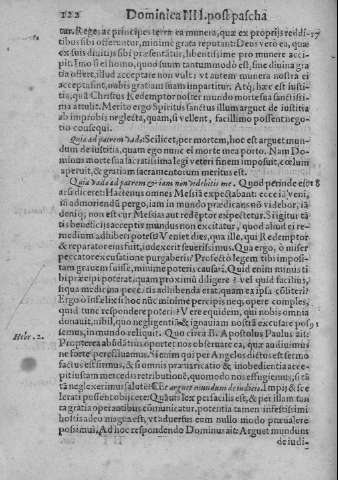 122 Dominica IIII. post pascha
tur. Reges ac principes terra ea munera, quæ ex proprijs reddi- 17
tibus sibi offeruntur, minimè grata reputant: Deus verò ea, quæ
ex suis diuitijs sibi præsentātur, libentissimè pro munere acci-
pit. Imo si ei homo, quod suum tantummodò est, sine diuina gra
tia offert, illud acceptare non vult: vt autem munera nostra ei
acceptasint, nobis gratiam suam impartitur. Atq; hæc est iusti-
tia, quā Christus Redemptor noster mundo morte sua sanctissi-
ma attulit. Meritò ergo Spiritus sanctus illum arguet de iustitia
ab improbis neglecta, quam, si vellent, facillimo possent nego-
tio consequi.
Quia ad patrem vado: Scilicet, per mortem, hoc est arguet mun-
dum de iustitia, quam ego nunc ei morte mea porto. Nam Do-
minus morte sua sacratissima legi veteri finem imposuit, cœlum
aperuit, & gratiam sacramentorum meritus est.
Quia vado ad patrem & iam non videbitis me. Quod perinde est 18
ars diceret: Hactenus omnes Messiā expectabant: ecce iā veni,
iā ad moriendū pergo, iam in mundo prædicans nō videbor, iā
deniq; non est cur Messias aut redēptor expectetur. Si igitur tā
tis beneficijs acceptis mundus non excitatur, quod aliud ei re-
medium adhiberi potest? Veniet dies, qua ille, qui Redemptor
& reparator eius fuit, iudex erit seuerissimus. Qua ergo, ô miser
peccator excusatione purgaberis? Profectò legem tibi imposi-
tam grauem fuisse, minimè poteris causari. Quid enim minus ti
bi præcipi poterat, quam proximū diligere? vel quid facilius,
siqua medicina peccatis adhibenda erat, quam ea ipsa cōfiteri?
Ergo ô infelix si hoc nūc minimè percipis neq; opere comples,
quid tunc respondere poteris? Verè equidem, qui nobis omnia
donauit, nihil, quo negligentiā & ignauiam nostrā excusare pos 91
semus, in mundo reliquit. Quo circa B. Apostolus Paulus ait:
Hebr. 2. Propterea abūdātius oportet nos obseruare ea, quæ audiuimus
ne fortè perefluamus. Si enim qui per Angelos dictus est sermo
factus est firmus, & omnis præuaricatio & inobedientia acce-
pit iustam mercedis retributionē, quomodo nos effugiemus, si tā
tā neglexerimus salutē? Et arguet mundum de iudicio. Impij & sce
lerati possent obijcere: Quāuis lex perfacilis est, & per illam tan
ta gratia operantibus cōmunicatur, potentia tamen infestissimi
hostis adeo magna est, vt aduersus eum nullo modo præualere
possimus. Ad hoc respondendo Dominus ait: Arguet mundum
de iudi-